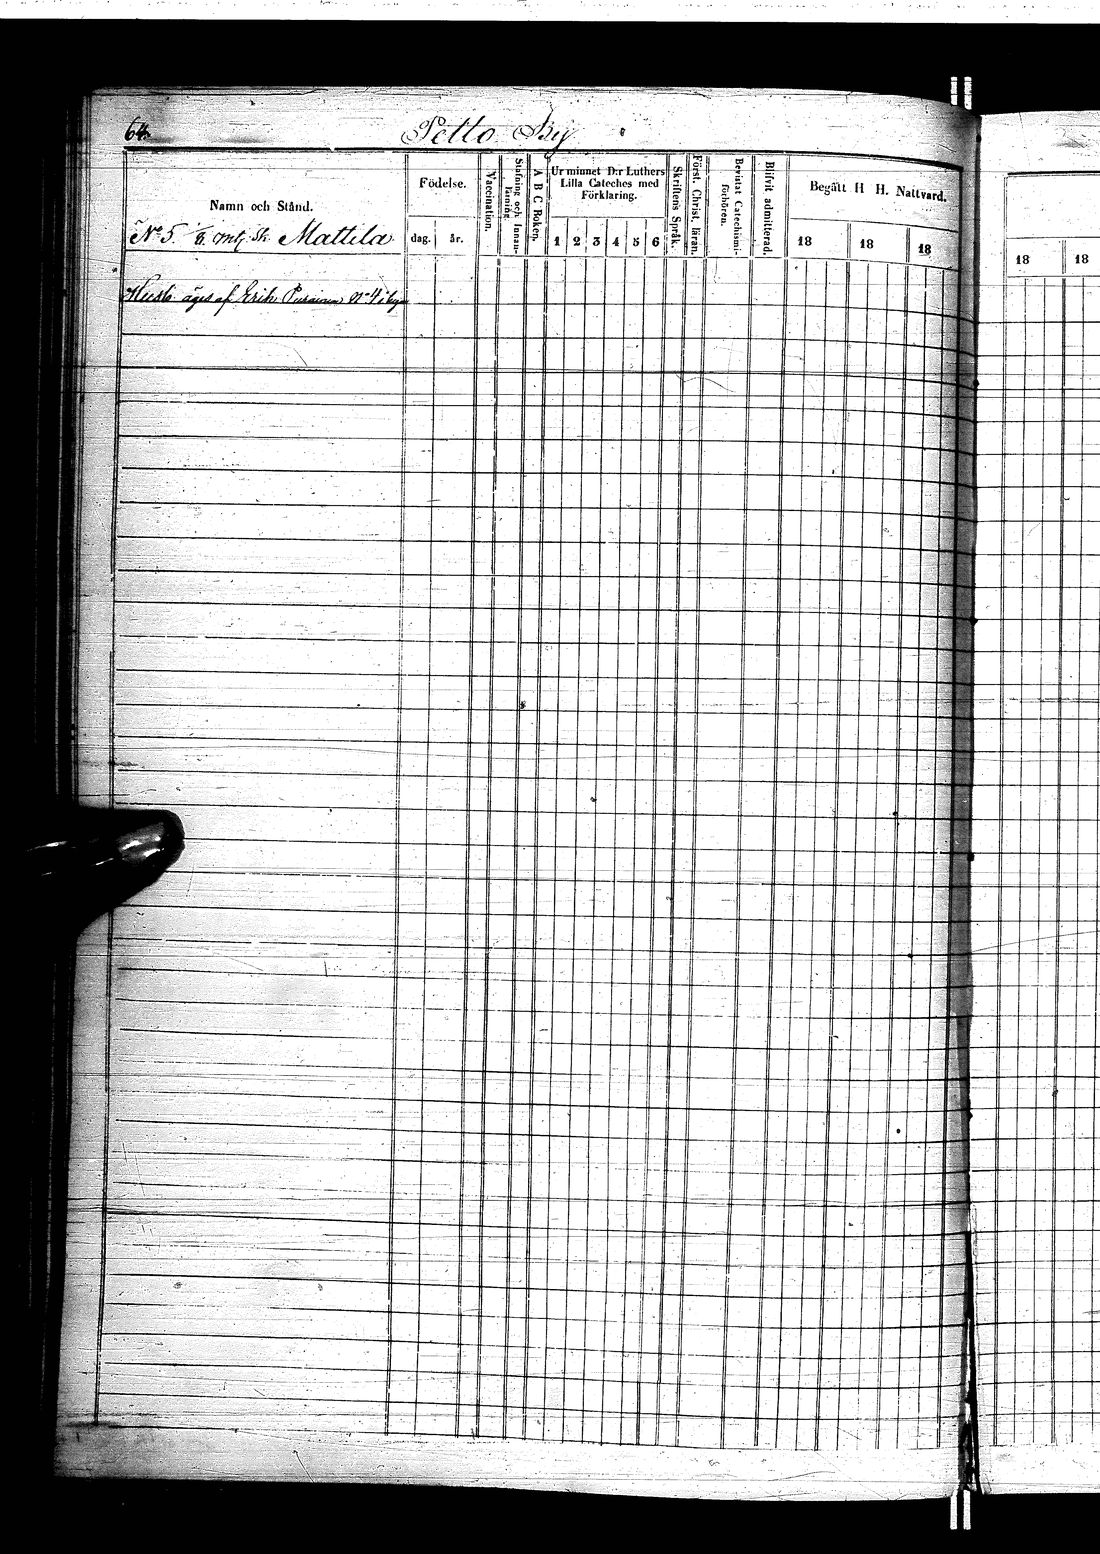 64.
Pello By
Namn och Stånd.
Födelse.
dag.
år.
Vaccination.
Stafning och Innan-
läsning.
A B C Boken.
Ur minnet D:r Luthers
Lilla Cateches med
Förklaring.
1 2 3 4 5 6
Skriftens Språk.
Först. Christ. läran.
Bevistat Catechismi-
förhören.
Blifvit admitterad.
Begått H H. Nattvard.
18 18 18
18 18
No 5. 1/8 mtl. Sk. Mattila
äges af Erik No 4 i